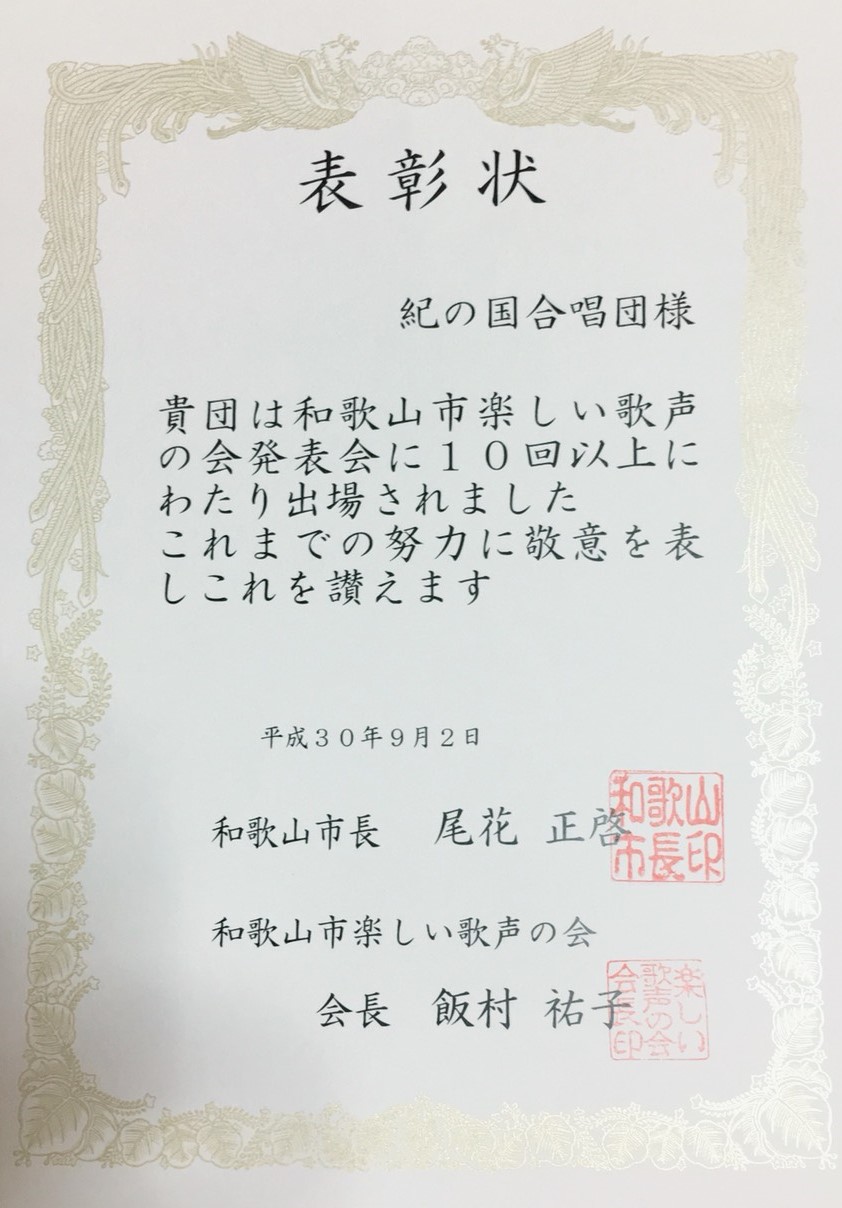 表彰状
紀の国合唱団様
貴団は和歌山市楽しい歌声
の会発表会に１０回以上に
わたり出場されました
これまでの努力に敬意を表
しこれを讃えます
平成３０年９月２日
和歌山市長　尾花　正啓
和歌山市長印
和歌山市楽しい歌声の会
会長　飯村　祐子
楽しい歌声の会会長印